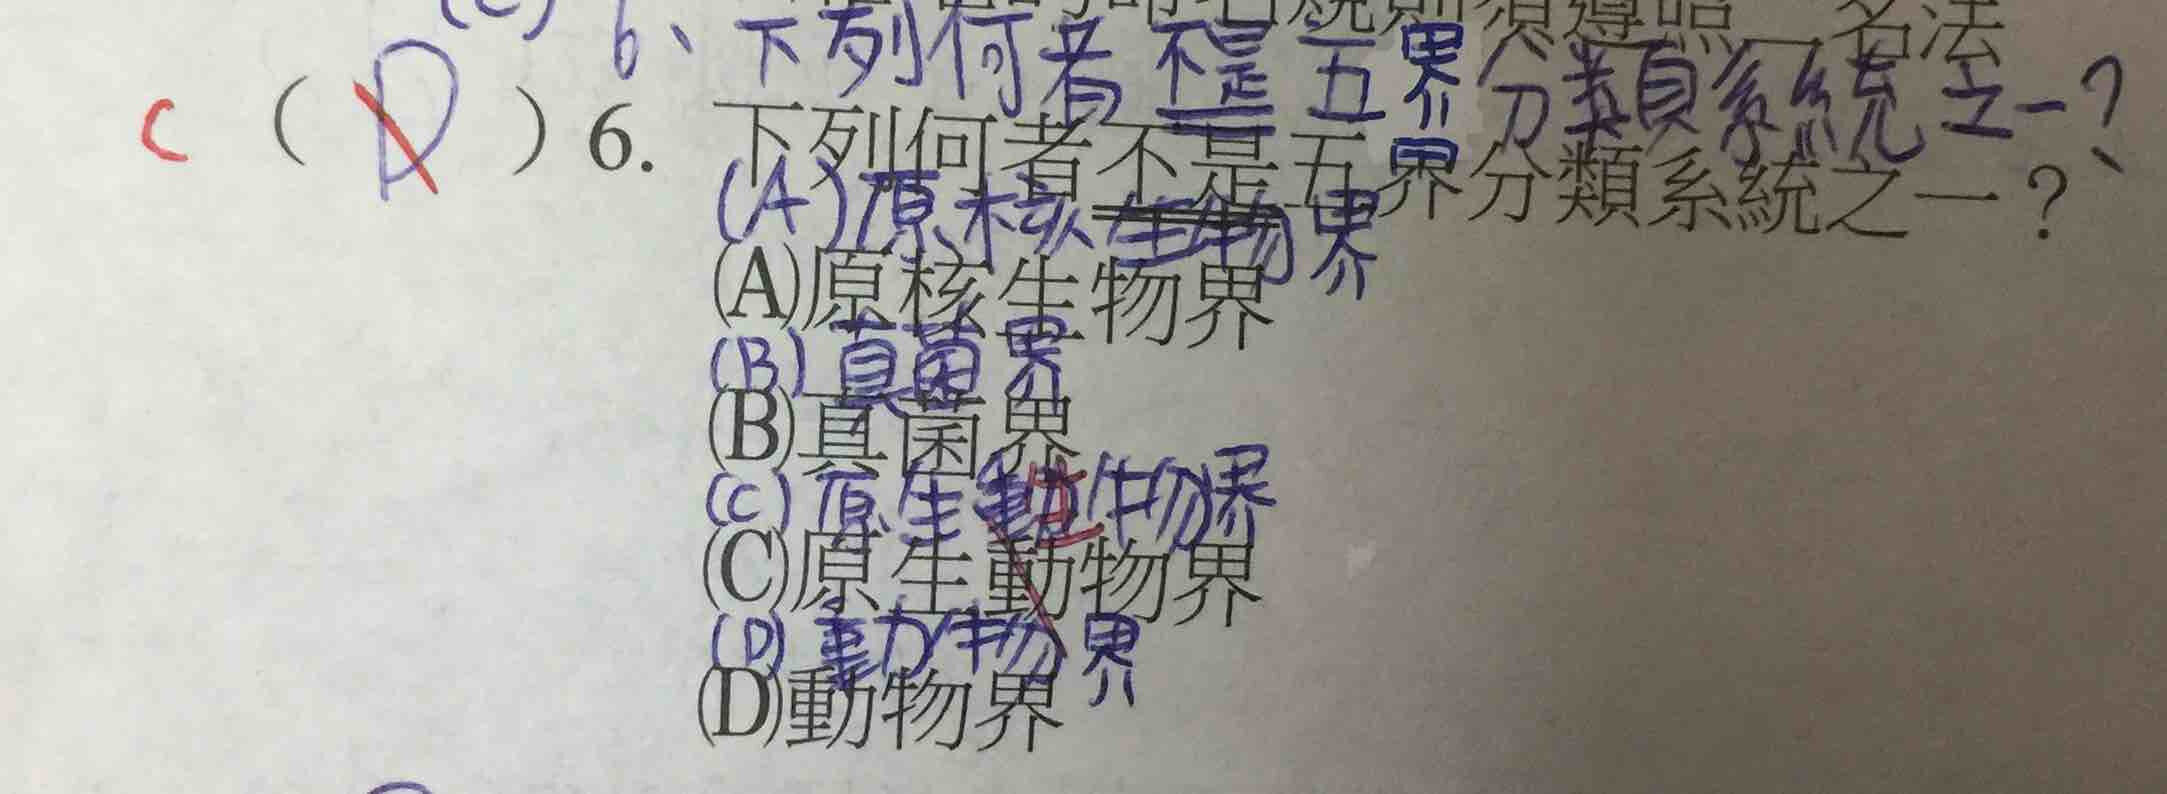 (C) 6、下列何者不是五界分類系統之一？
C ( D ) 6. 下列何者不是五界分類系統之一？
(A)原核生物界
(A)原核生物界
(B)真菌界
(B)真菌界
(C)原生動生物界
(C)原生動物界
(D)動物界
(D)動物界